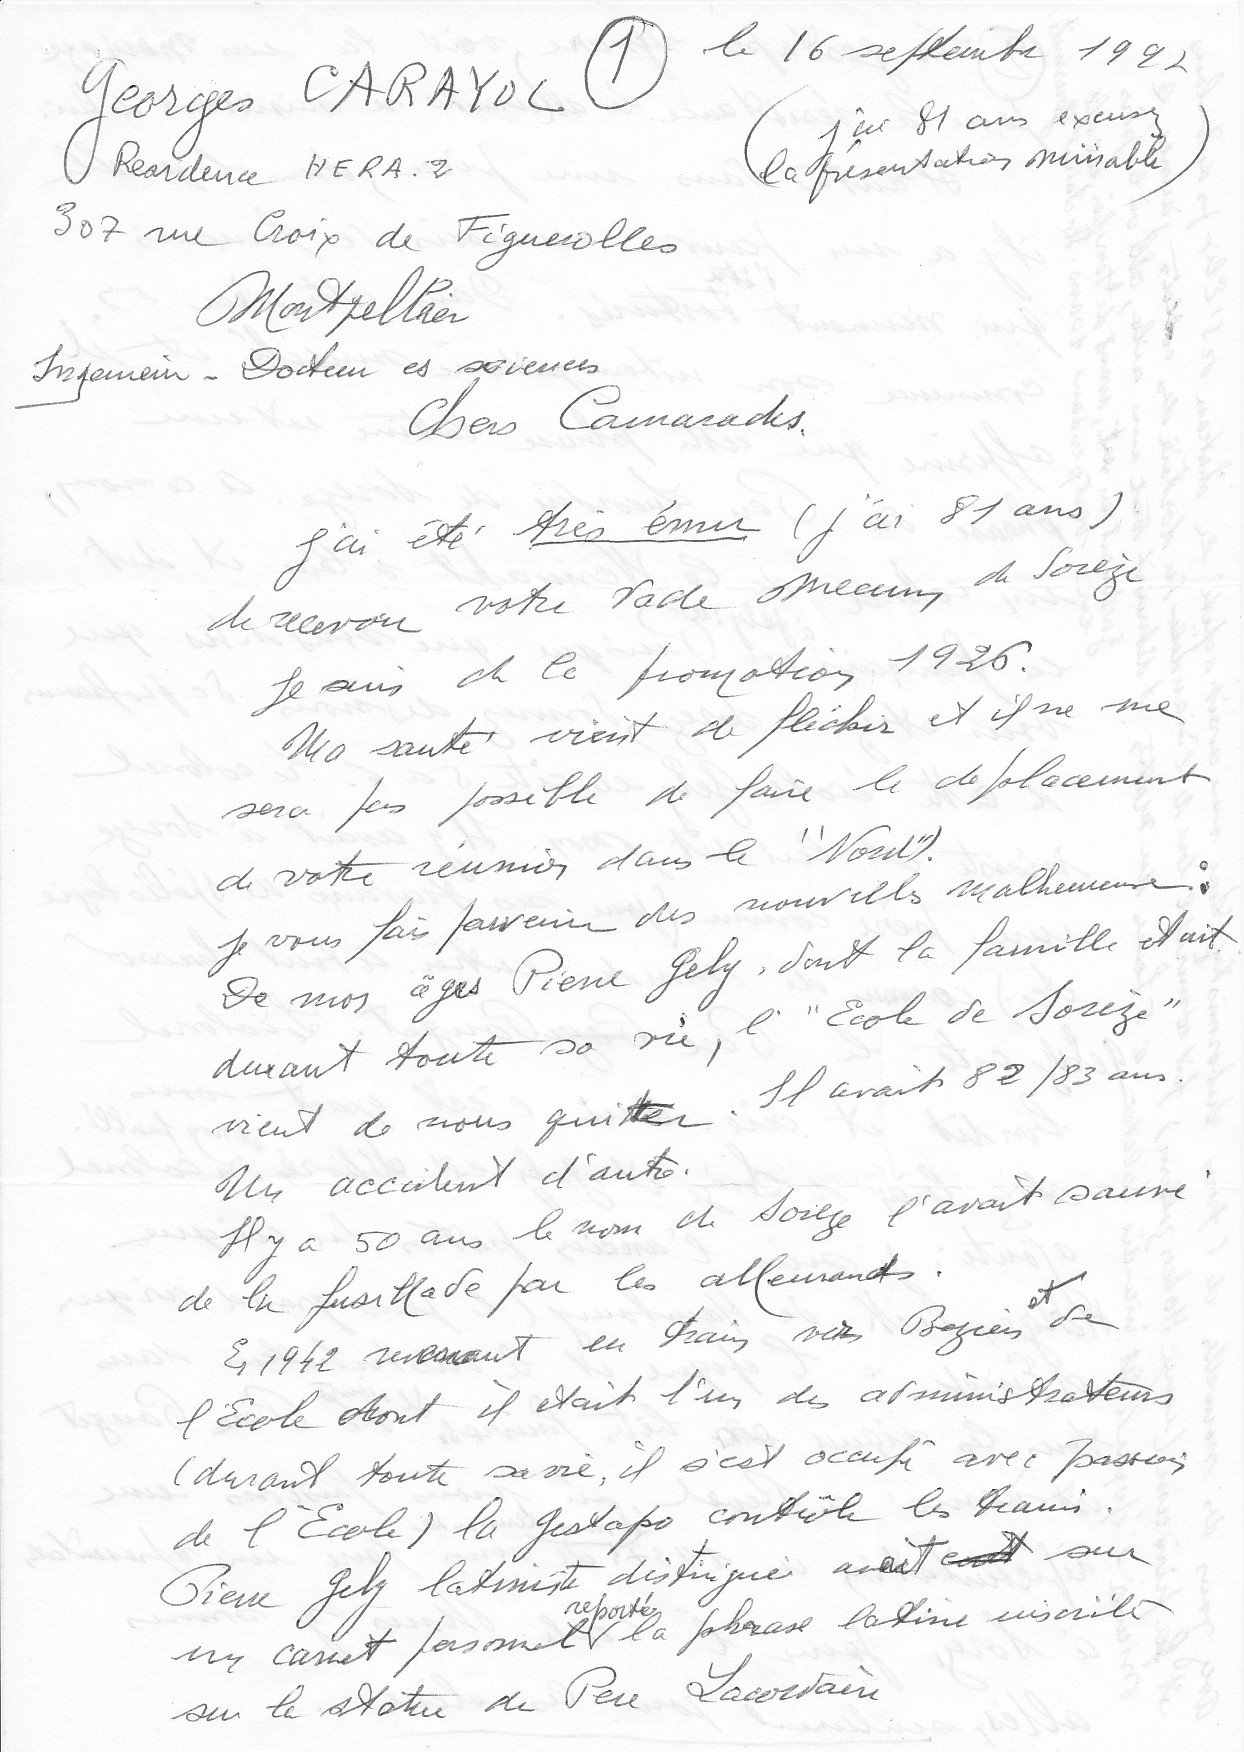 1
le 16 septembre 1992
Georges CARAYOL
(j'ai 81 ans excusez
la présentation misérable)
Residence HERA. 2
307 rue Croix de Figuerolles
Montpellier
Ingenieur - Docteur es sciences
Chers Camarades.
J'ai été très ému (j'ai 81 ans)
de recevoir votre Vade Mecum de Sorèze
Je suis de la promotion 1926.
Ma santé vient de fléchir et il ne me
sera pas possible de faire le deplacement
de votre réunion dans le "Nord").
Je vous fais parvenir des nouvelles malheureuses :
De mos âges Pierre Gely, dont la famille etait
durant toute sa vie, l' "Ecole de Sorèze"
vient de nous quitter. Il avait 82/83 ans.
Un accident d'auto.
Il y a 50 ans le nom de Sorèze l'avait sauvé
de la fusillade par les allemands.
En 1942 revenant en train vers Beziers et de
l'Ecole dont il etait l'un des administrateurs
(durant toute sa vie, il s'est occupé avec passion
de l'Ecole) la Gestapo contrôle les trains.
Pierre Gely latiniste distingué avait sur
un carnet personnel reporté la phrase latine inscrite
sur la statue du Pere Lacordaire